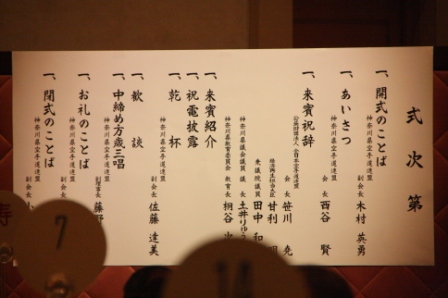 式次第
一、開式のことば
神奈川県空手道連盟 副会長 木村 英勇
一、あいさつ
神奈川県空手道連盟 会長 西谷 賢
一、来賓祝辞
公益財団法人 全日本空手道連盟 会長 笹川 堯
経済再生担当大臣 甘利 明
衆議院議員 田中 和
神奈川県議会議員 土井りゅう
神奈川県教育委員会 教育長 桐谷 次
一、来賓紹介
一、祝電披露
一、乾杯
一、歓談
神奈川県空手道連盟 副会長 佐藤 達美
一、中締め万歳三唱
神奈川県空手道連盟 副理事長 藤野
一、お礼のことば
神奈川県空手道連盟 副会長
一、閉式のことば
神奈川県空手道連盟 副会長
寿
7
14